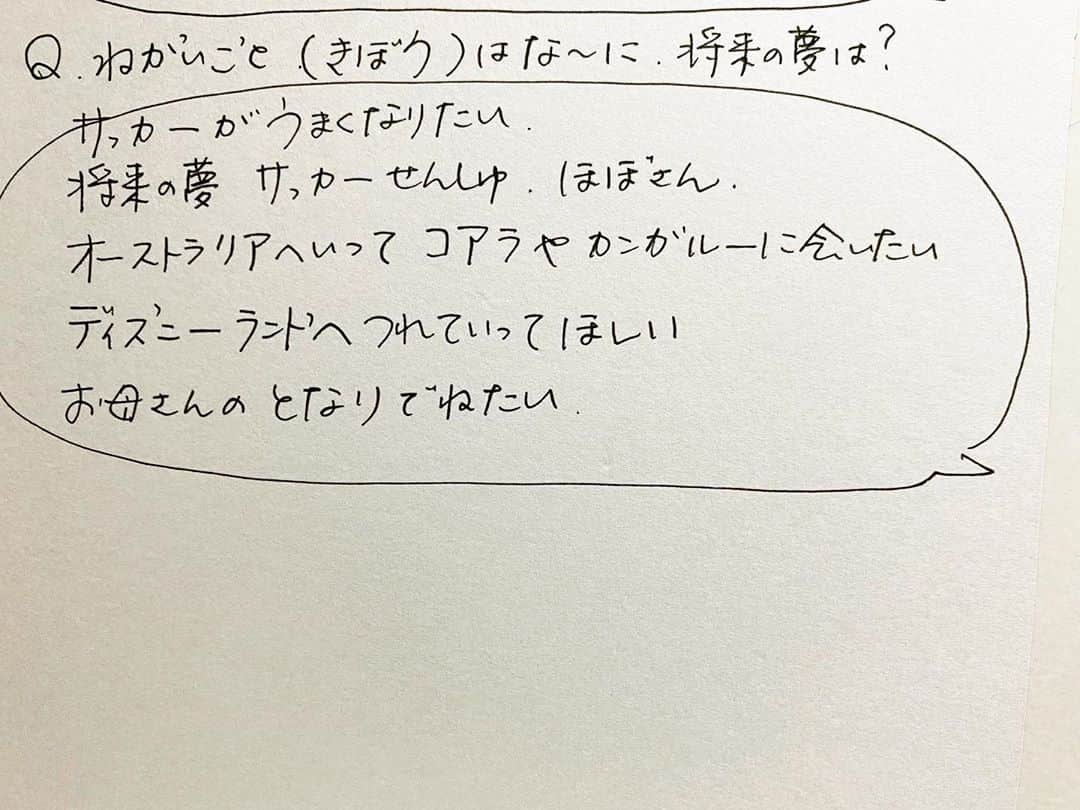 Q.ねがいごと(きぼう)はな〜に.将来の夢は?
サッカーがうまくなりたい.
将来の夢 サッカーせんしゅ.ほぼさん.
オーストラリアへいって コアラや カンガルーに会いたい
ディズニーランドへ つれていってほしい
お母さんの となりでねたい.